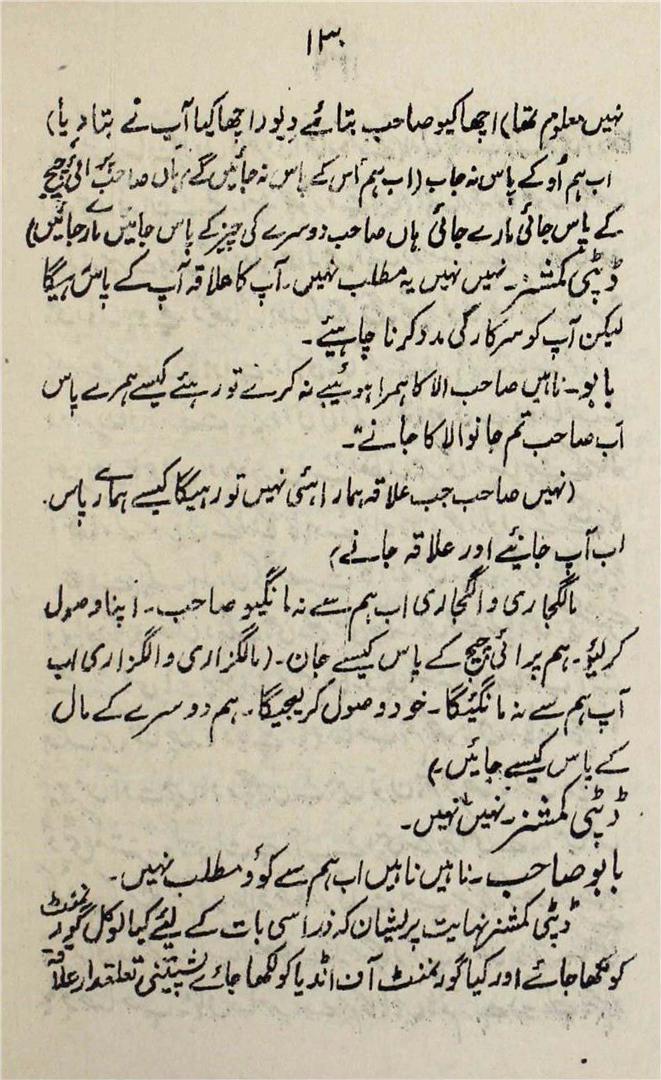 ۱۳۰
نہیں معلوم تھا) اچھا کیو صاحب بتائے دیو (اچھا کیا آپ نے بتا دیا)
اب ہم اُو کے پاس نہ جاب (اب ہم اُس کے پاس نہ جائیں گے) ہاں صاحب پرائی چیج
کے پاس جائی مارے جائی ہاں صاحب دوسرے کی چیز کے پاس جائیں مارے جائیں)
ڈپٹی کمشنر۔ نہیں نہیں یہ مطلب نہیں۔ آپ کا علاقہ آپ کے پاس رہیگا
لیکن آپ کو سرکار کی مدد کرنا چاہیئے۔
بابو۔ ناہیں صاحب الاکا ہمرا ہوئیبے نہ کرے تو رہئے کیسے ہمرے پاس
اب صاحب تم جانو الاکا جانے"۔
(نہیں صاحب جب علاقہ ہمارا ہئی نہیں تو رہیگا کیسے ہمارے پاس۔
اب آپ جانیئے اور علاقہ جانے)
مالگجاری والگجاری اب ہم سے نہ مانگیو صاحب۔ اپنا وصول
کرلیؤ۔ ہم پرائی چیج کے پاس کیسے جان۔ (مالگزاری والگزاری اب
آپ ہم سے نہ مانگیئگا۔ خود وصول کر لیجیگا۔ ہم دوسرے کے مال
کے پاس کیسے جائیں۔)
ڈپٹی کمشنر۔ نہیں نہیں۔
بابو صاحب۔ ناہیں ناہیں اب ہم سے کوؤ مطلب نہیں۔
ڈپٹی کمشنر نہایت پریشان کہ ذرا سی بات کے لیئے کیا لوکل گورنمنٹ
کو لکھا جائے اور کیا گورنمنٹ آف انڈیا کو لکھا جائے پشتینی تعلقدار علاقہ